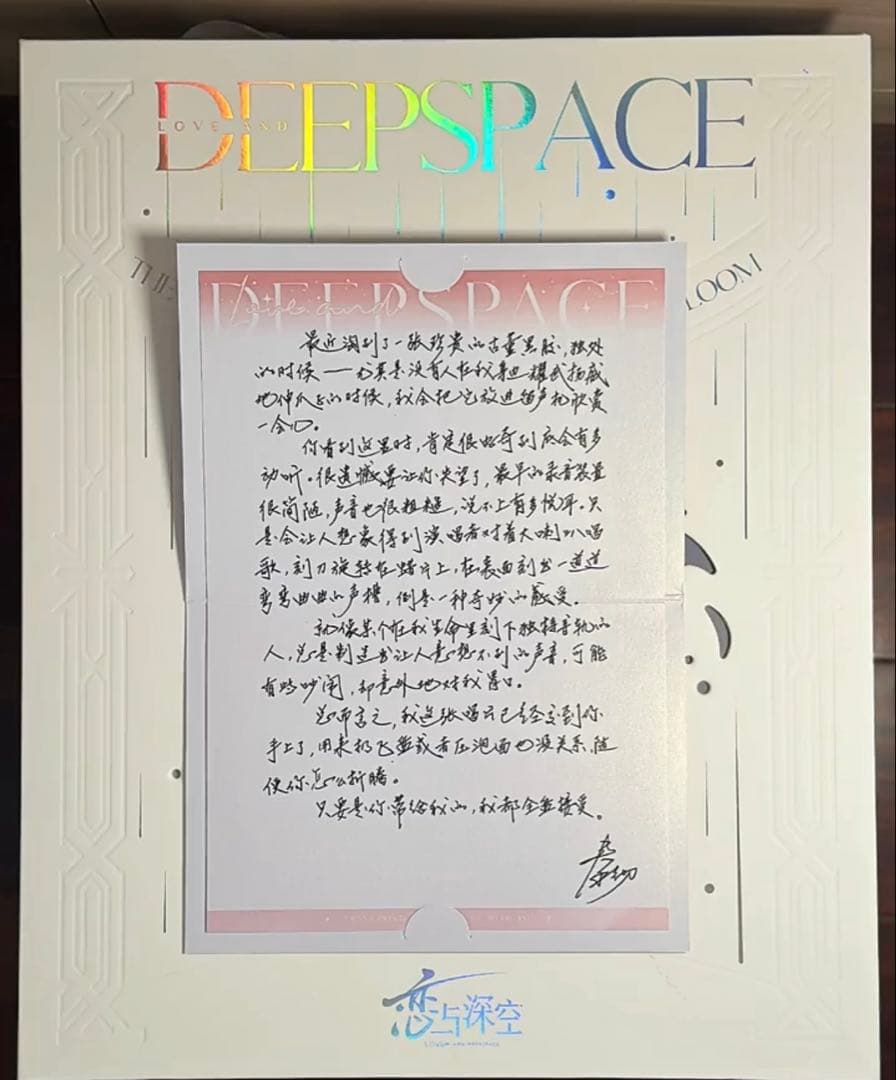 DEEPSPACE
LOVE AND
THE
LOOM
DEEPSPACE
Love and
最近淘到了一张珍贵的古董黑胶，独处
的时候——尤其是没有人在我身边耀武扬威
地伸爪子的时候，我会把它放进留声机欣赏
一会儿。
你看到这里时，肯定很好奇到底会有多
动听。很遗憾要让你失望了，最早的录音装置
很简陋，声音也很粗糙，说不上有多悦耳。只
是会让人想象得到演唱者对着大喇叭唱
歌，刻刀旋转在蜡片上，在表面刻出一道道
弯弯曲曲的声槽，倒是一种奇妙的感受。
就像某个在我生命里刻下独特音轨的
人，总是制造出让人意想不到的声音，可能
有时吵闹，却意外地对我胃口。
总而言之，我这张唱片已经交到你
手上了，用来扔飞盘或者压泡面也没关系，随
便你怎么折腾。
只要是你带给我的，我都全盘接受。
秦彻
恋与深空